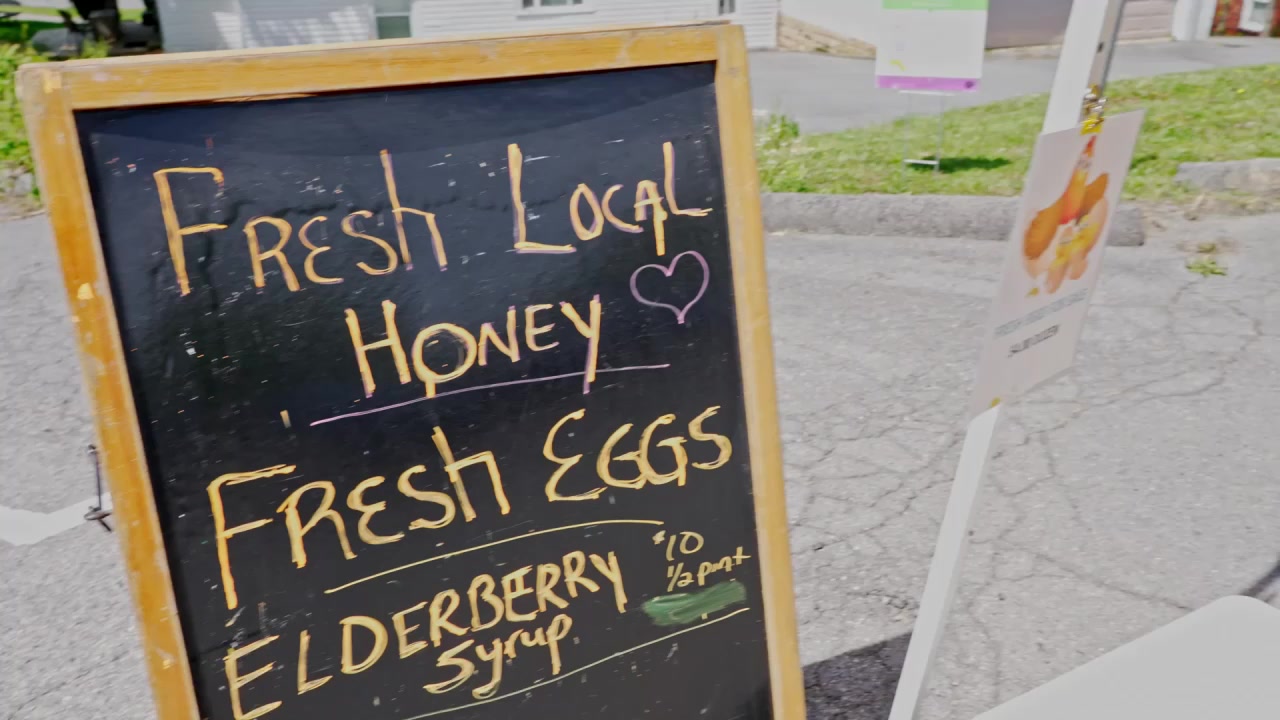 FRESh LOCAL
HONEY
FRESh EGGS
ELDERBERRY
Syrup
$10
1/2 pint